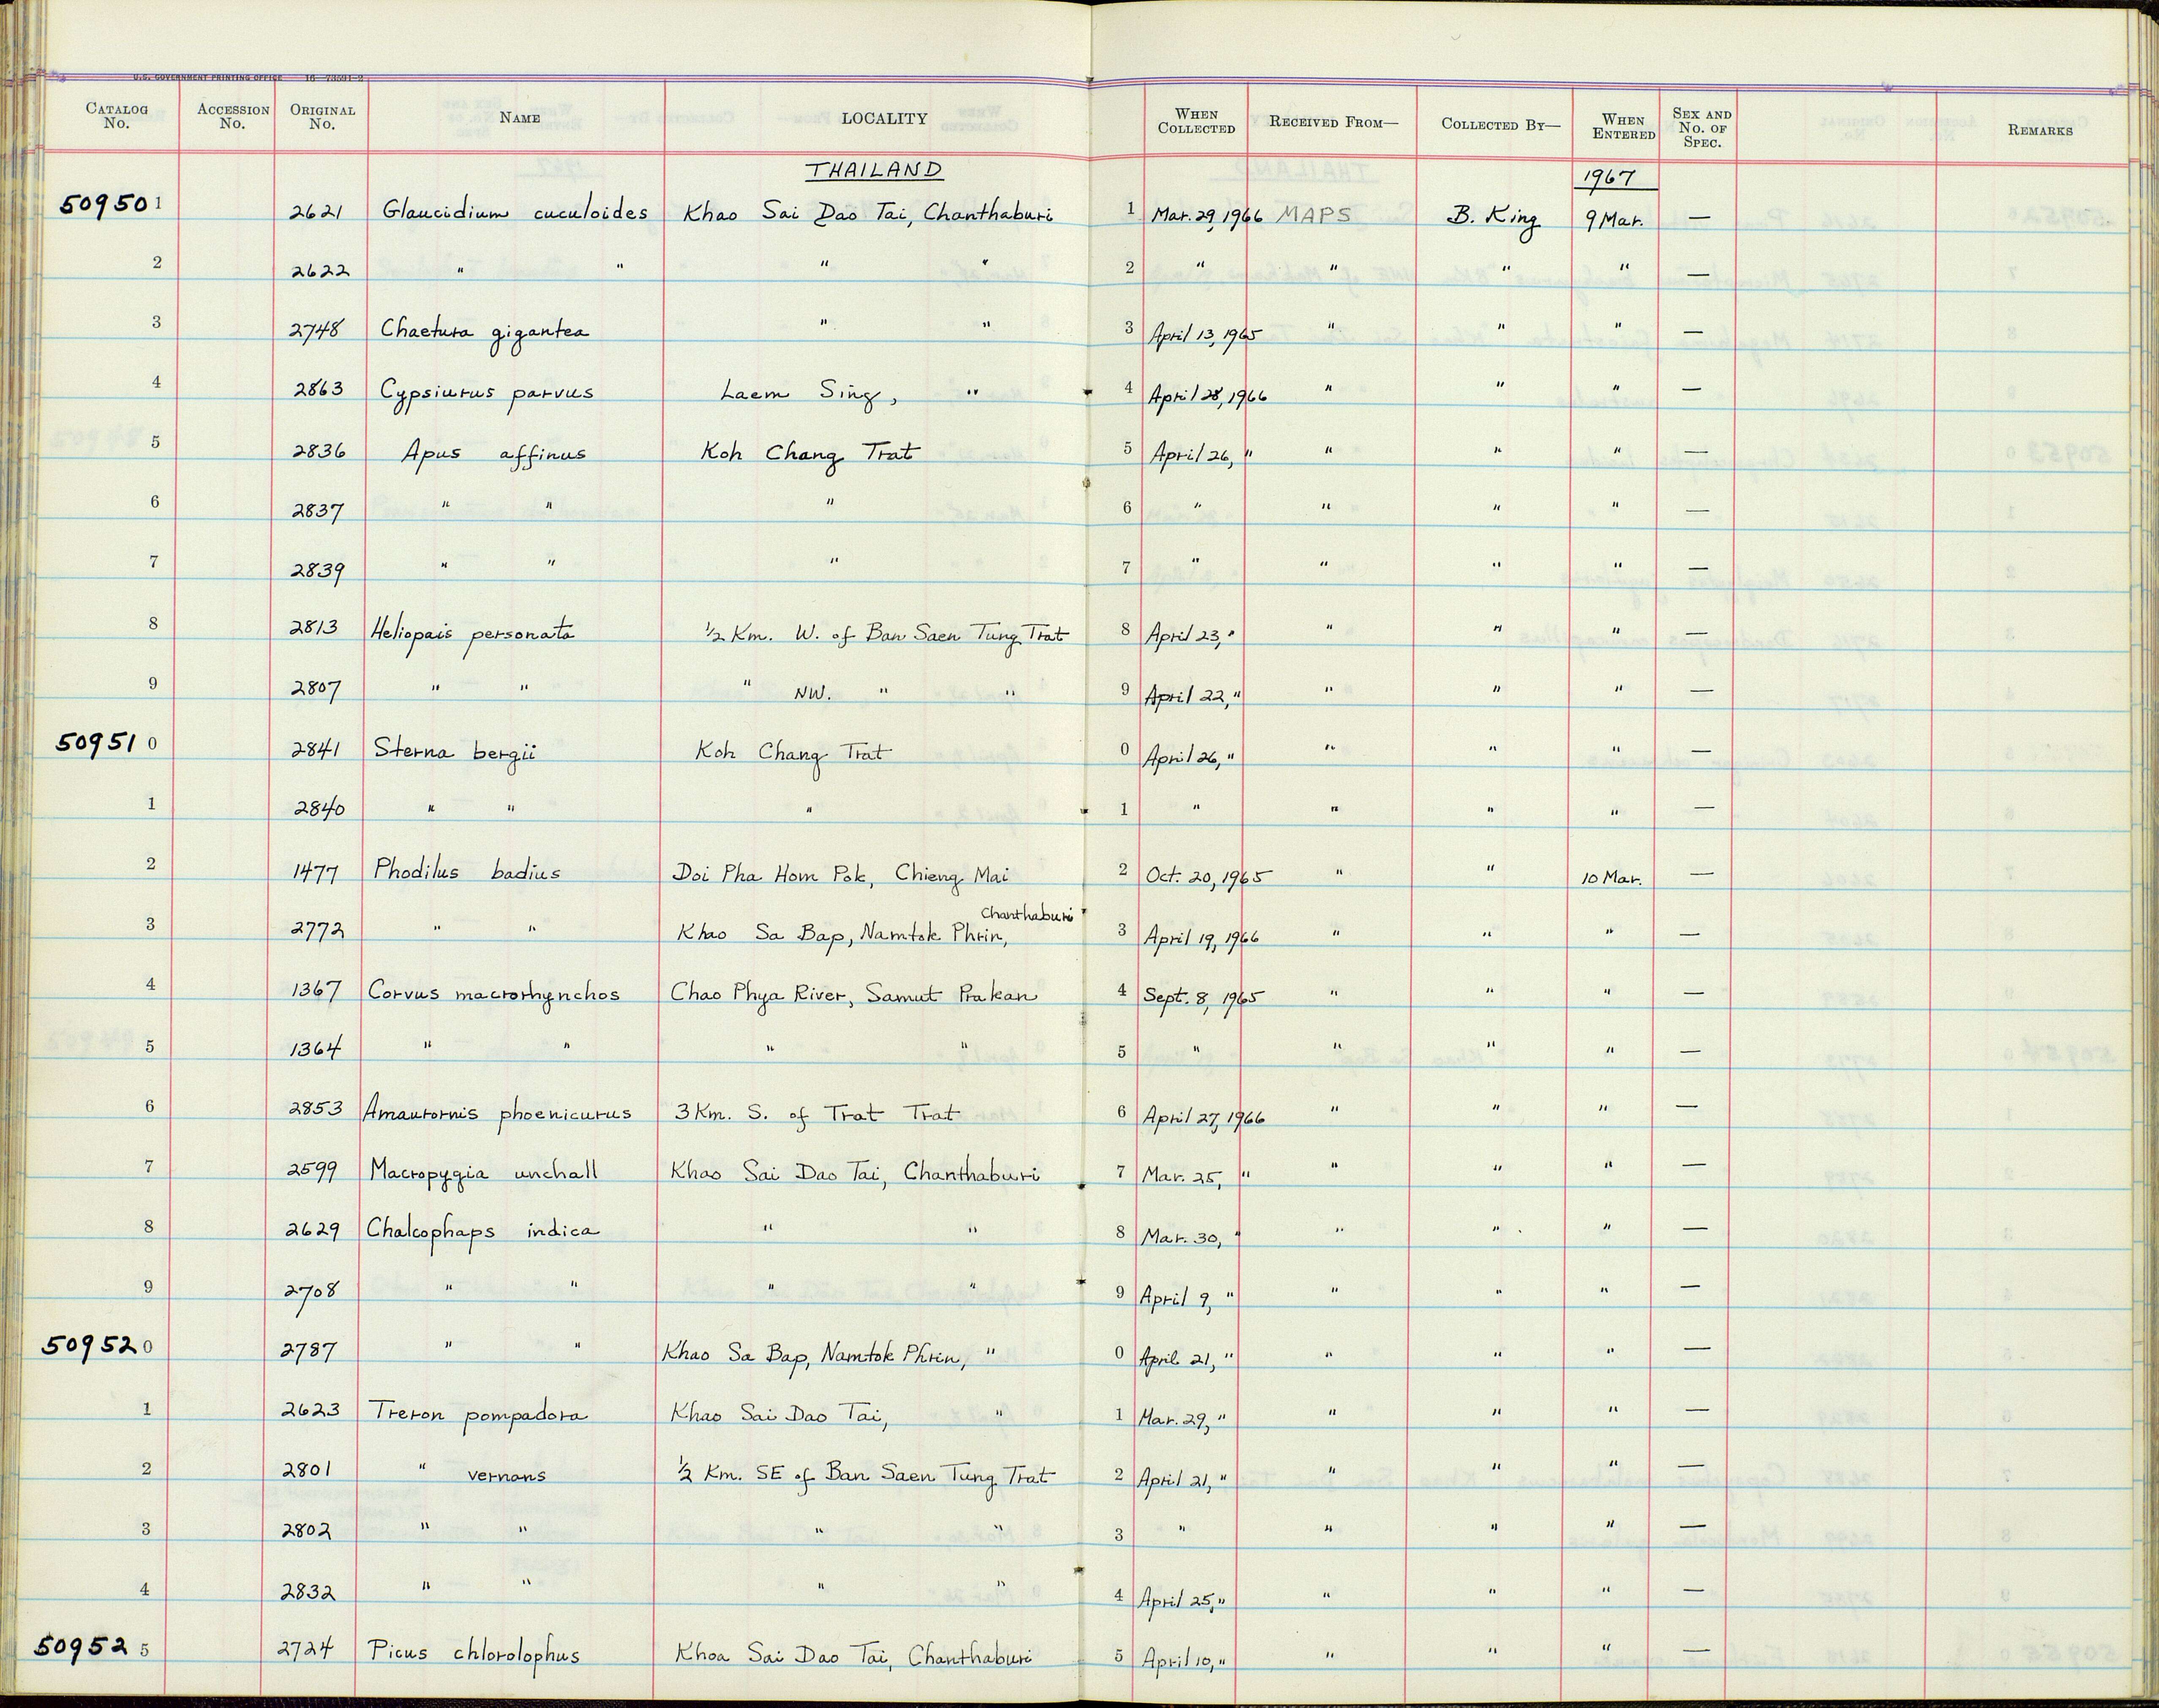 U.S. GOVERNMENT PRINTING OFFICE 16—73591-2
CATALOG No. ACCESSION No. ORIGINAL No. NAME LOCALITY WHEN COLLECTED RECEIVED FROM— COLLECTED BY— WHEN ENTERED SEX AND No. OF SPEC. REMARKS
THAILAND 1967
50950 1 2621 Glaucidium cuculoides Khao Sai Dao Tai, Chanthaburi 1 Mar. 29, 1966 MAPS B. King 9 Mar. —
2 2622 " " " " 2 " " " " —
3 2748 Chaetura gigantea " " 3 April 13, 1965 " " " —
4 2863 Cypsiurus parvus Laem Sing, " 4 April 28, 1966 " " " —
5 2836 Apus affinus Koh Chang Trat 5 April 26, " " " " —
6 2837 " " " 6 " " " " —
7 2839 " " " 7 " " " " —
8 2813 Heliopais personata 1/2 Km. W. of Ban Saen Tung Trat 8 April 23, " " " " —
9 2807 " " " NW. " " 9 April 22, " " " " —
50951 0 2841 Sterna bergii Koh Chang Trat 0 April 26, " " " " —
1 2840 " " " 1 " " " " —
2 1477 Phodilus badius Doi Pha Hom Pok, Chieng Mai 2 Oct. 20, 1965 " " 10 Mar. —
3 2772 " " Khao Sa Bap, Namtok Phrin, Chanthaburi 3 April 19, 1966 " " " —
4 1367 Corvus macrorhynchos Chao Phya River, Samut Prakan 4 Sept. 8, 1965 " " " —
5 1364 " " " " 5 " " " " —
6 2853 Amaurornis phoenicurus 3 Km. S. of Trat Trat 6 April 27, 1966 " " " —
7 2599 Macropygia unchall Khao Sai Dao Tai, Chanthaburi 7 Mar. 25, " " " " —
8 2629 Chalcophaps indica " " 8 Mar. 30, " " " " —
9 2708 " " " " 9 April 9, " " " " —
50952 0 2787 " " Khao Sa Bap, Namtok Phrin, " 0 April 21, " " " " —
1 2623 Treron pompadora Khao Sai Dao Tai, " 1 Mar. 29, " " " " —
2 2801 " vernans 1/2 Km. SE of Ban Saen Tung Trat 2 April 21, " " " " —
3 2802 " " " " 3 " " " " —
4 2832 " " " " 4 April 25, " " " " —
50952 5 2724 Picus chlorolophus Khoa Sai Dao Tai, Chanthaburi 5 April 10, " " " " —